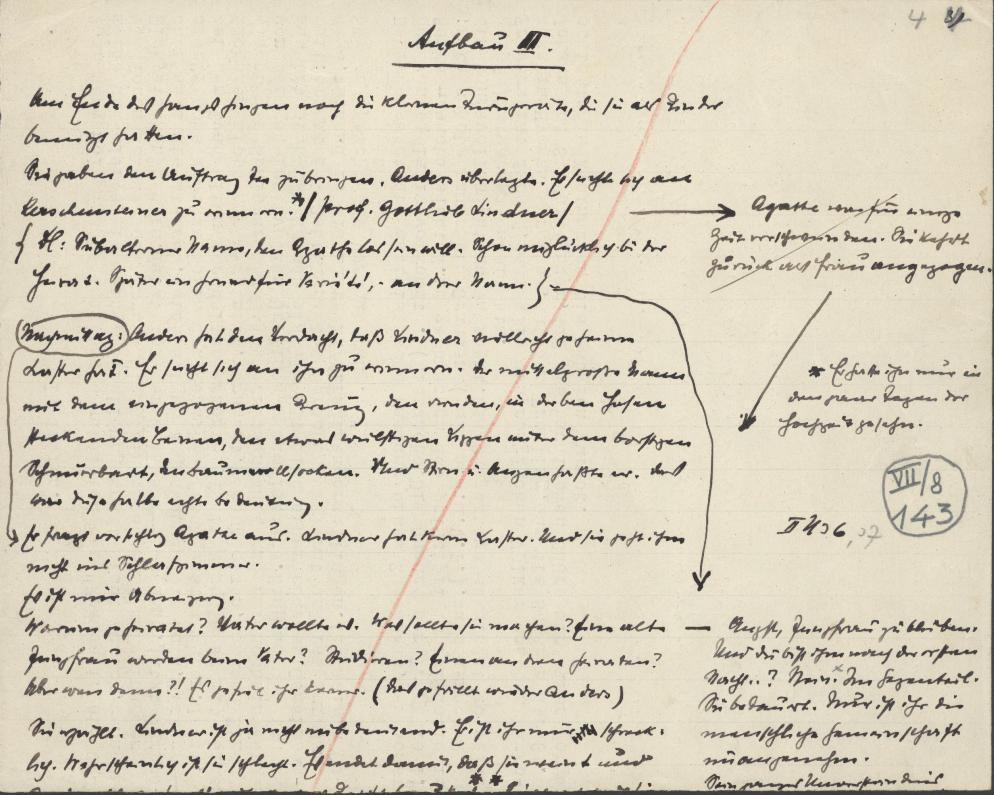 4
Aufbau III.
Am Ende des hingen noch die kleinen Turngeräte, die sie als Kinder
benützt hatten.
Sie gaben den Auftrag das zu bringen. Anders überlegte. Er suchte sich an
Kerschensteiner zu erinnern.* / Prof. Gottlieb Lindner /
{ Subalterner Mann, den Agathe los sein will. Schon unglücklich bei der
Heirat. Später ein Mann. }
Nachmittag: Anders hat den Verdacht, daß Lindner vielleicht geheime
Laster hat. Er sucht sich an ihn zu erinnern. Der mittelgroße Mann
mit dem eingezogenen Kreuz, den runden, in derben Hosen
steckenden Beinen, den etwas wulstigen Lippen unter dem borstigen
Schnurrbart, den Baumwollsocken. Und Stirn u. Augen hatte er. Das
war
Er fragt vorsichtig Agathe aus. Lindner hat keine Laster. Und sie geht ihm
nicht ins Schlafzimmer.
Es ist nur Abneigung.
Warum geheiratet? Vater wollte es. Was sollte sie machen? Eine alte
Jungfrau werden beim Vater? Studieren? Einen andern heiraten?
Aber wen denn?! Es gefiel ihr keiner. (das gefällt wieder Anders)
Sie erzählt. Lindner ist ja nicht unbedeutend. Er ist ihr nur schreck-
lich. Wahrscheinlich ist sie schlecht. Es endet damit, daß sie weint und
Agathe war für einige
Zeit verschwunden. Sie kehrt
zurück als Frau angezogen.
* Er hatte ihn nur in
den paar Tagen der
Hochzeit gesehn.
VII/8
143
II 36, 37
— Angst, Jungfrau zu bleiben.
Und die bist ihm nach der ersten
Nacht..? Nein. Im Gegenteil.
Sie bedauert. Nur ist ihr die
menschliche Gemeinschaft
unangenehm.
Sein ganzes Unverständnis